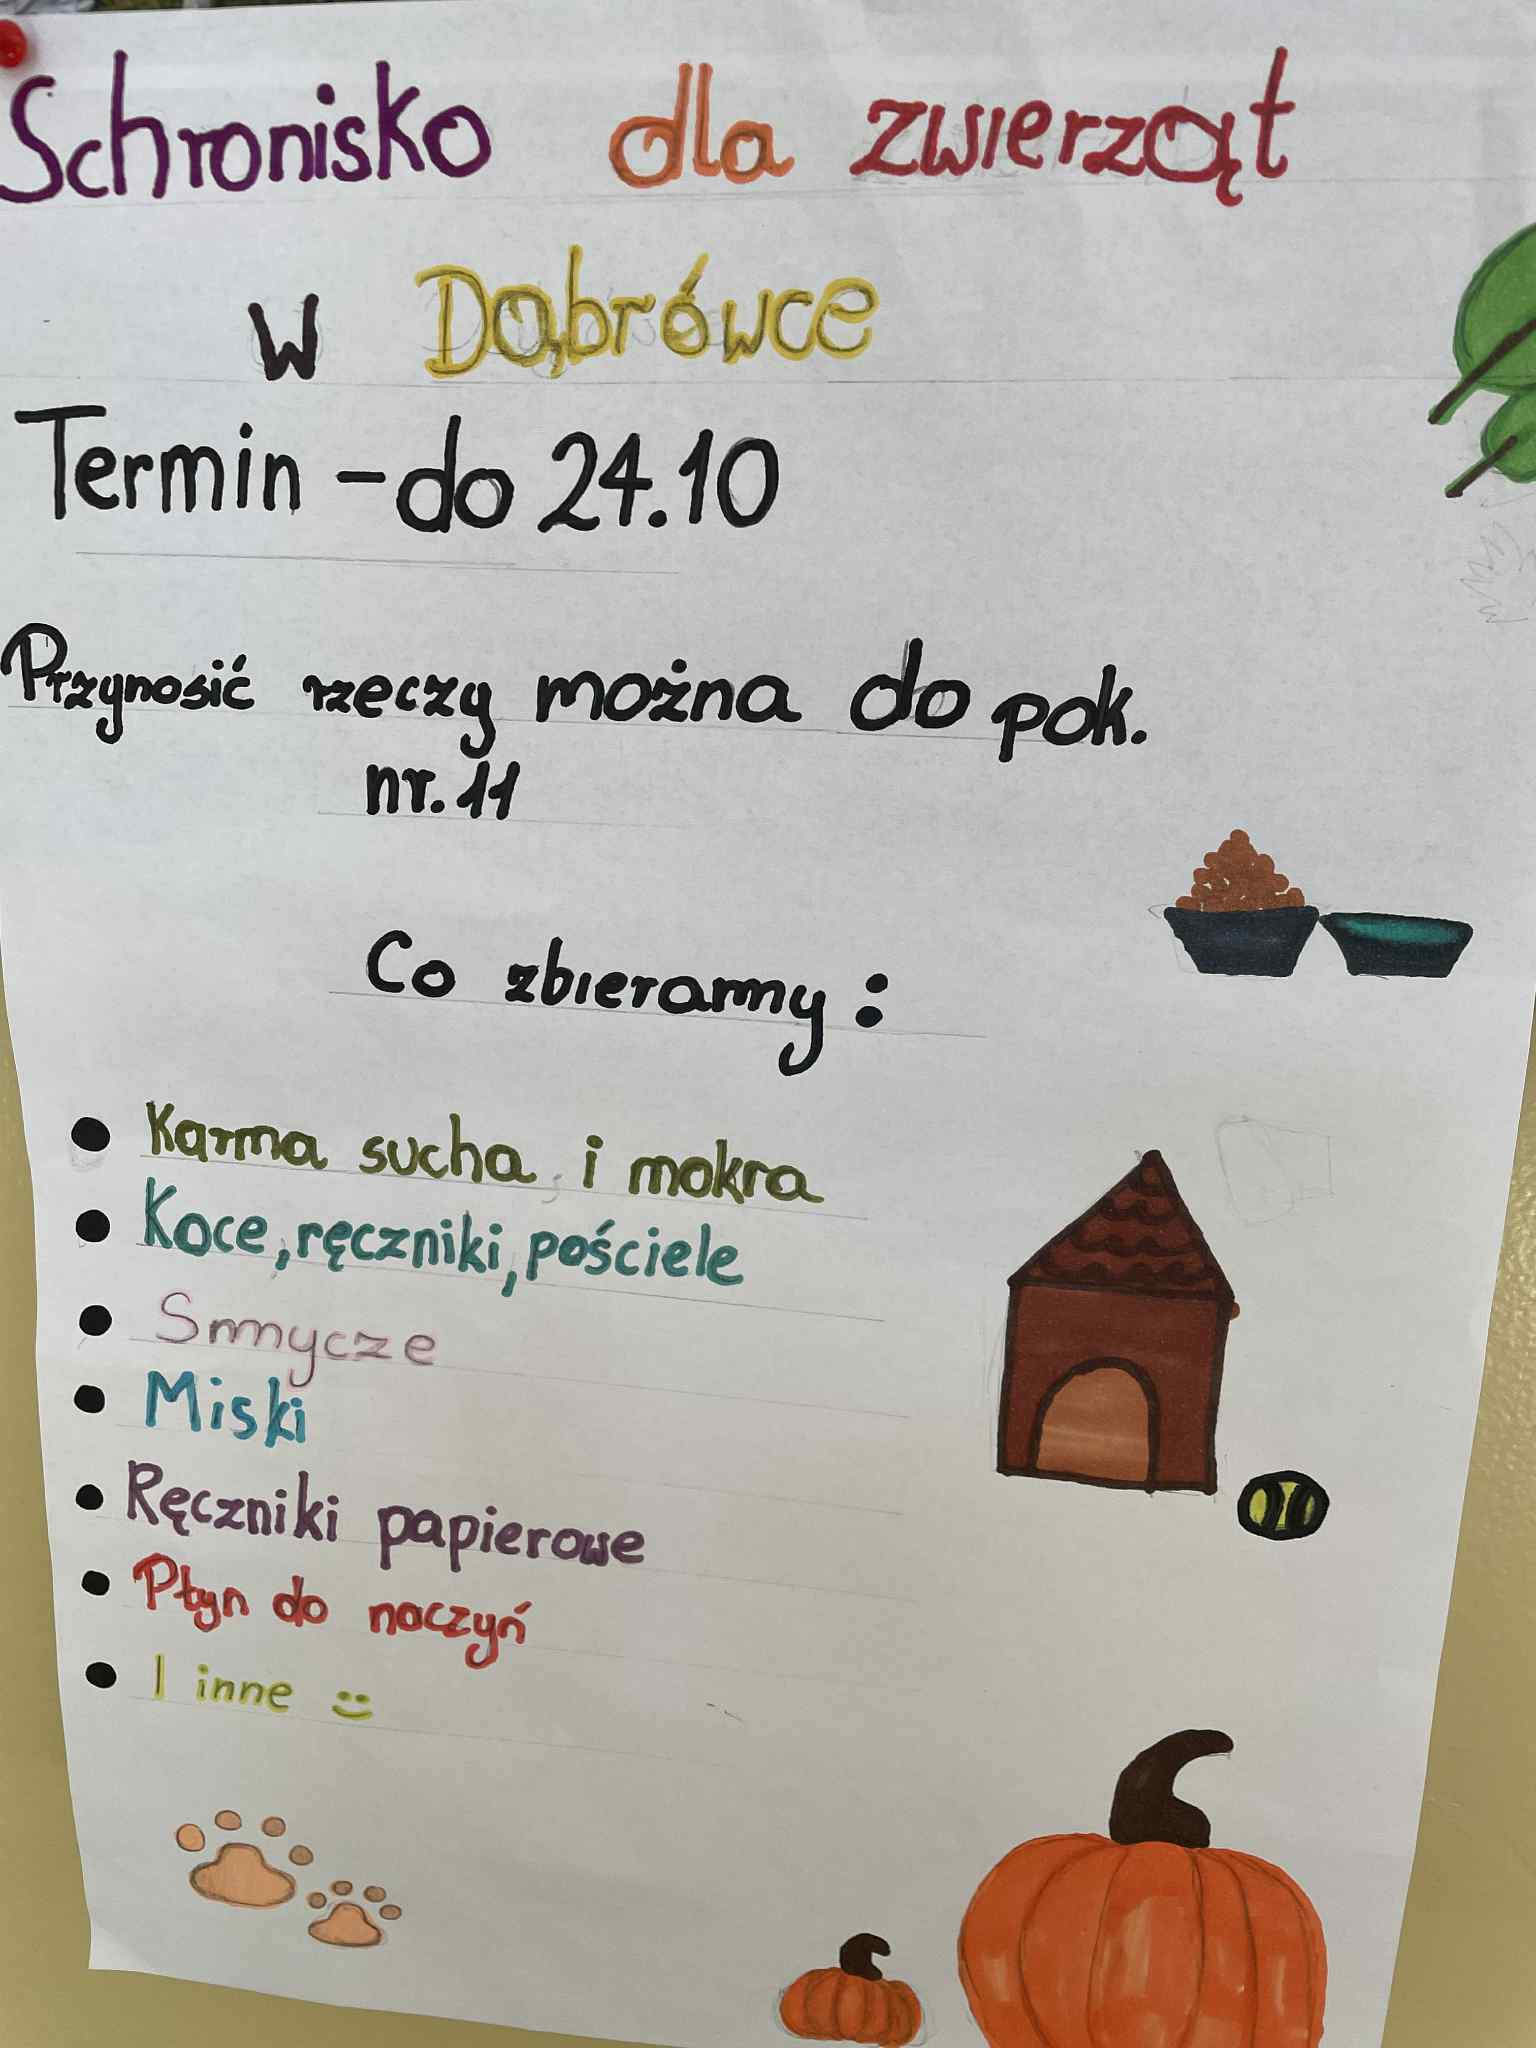 Schronisko dla zwierząt
w Dąbrówce
Termin - do 24.10
Przynosić rzeczy można do pok.
nr. 11
Co zbieramy :
• Karma sucha i mokra
• Koce, ręczniki, pościele
• Smycze
• Miski
• Ręczniki papierowe
• Płyn do naczyń
• I inne :)